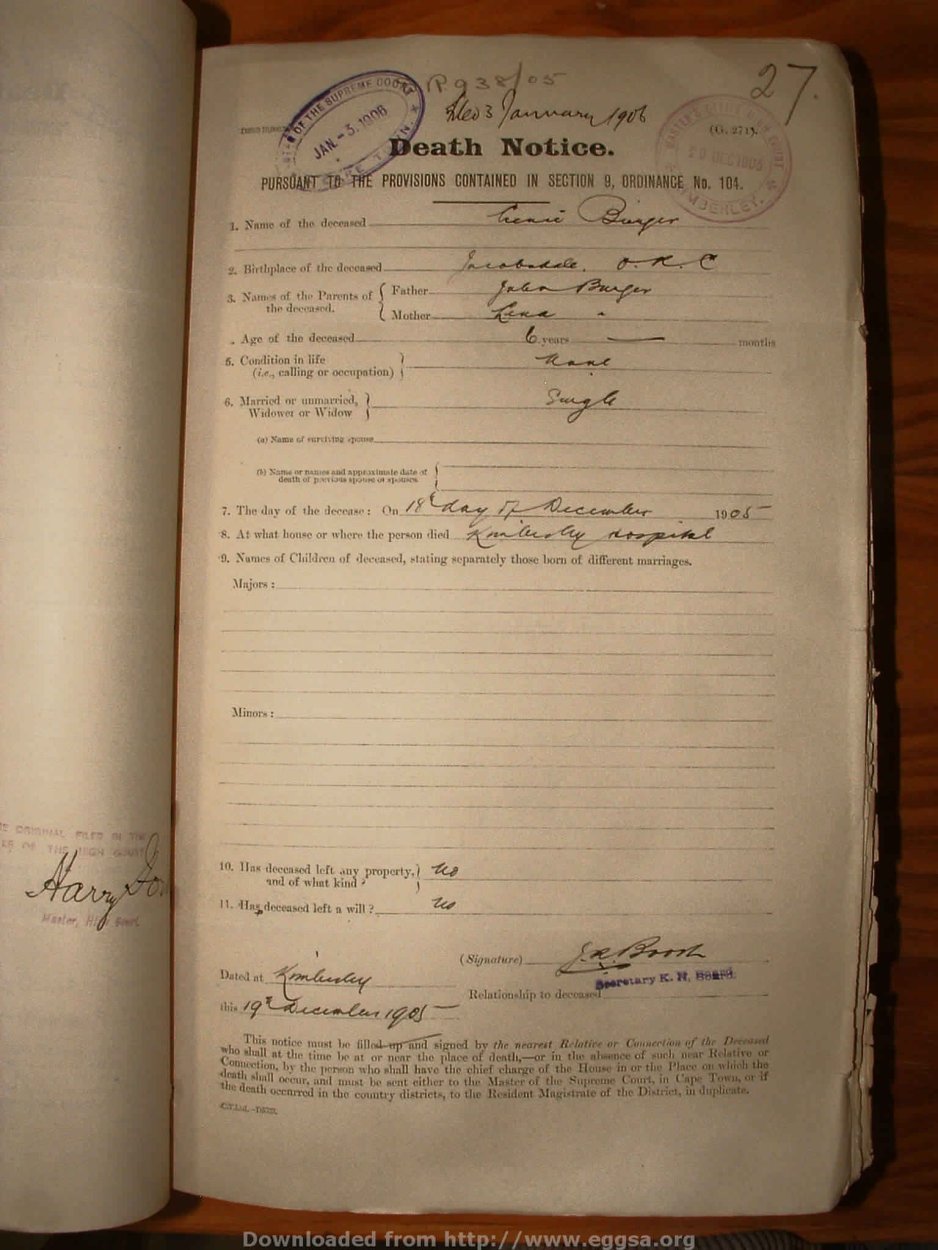 P938/05
27.
Filed 3 January 1906
OF THE SUPREME COURT
JAN - 3. 1906
(G. 271).
20 DEC 1905
Death Notice.
PURSUANT TO THE PROVISIONS CONTAINED IN SECTION 9, ORDINANCE No. 104.
1. Name of the deceased Burger
2. Birthplace of the deceased Jacobsdale. O.R.C
3. Names of the Parents of the deceased. Father John Burger
Mother Lena "
. Age of the deceased 6 years — months
5. Condition in life
(i.e., calling or occupation) None
6. Married or unmarried,
Widower or Widow Single
(a) Name of surviving spouse
(b) Name or names and approximate date of
death of previous spouse or spouses
7. The day of the decease: On 18th day of December 1905
8. At what house or where the person died Kimberley Hospital
9. Names of Children of deceased, stating separately those born of different marriages.
Majors :
Minors :
10. Has deceased left any property,
and of what kind? No
11. Has deceased left a will? No
THE ORIGINAL FILED IN THE
OF THE HIGH COURT
Harry
Master, High Court.
(Signature) J.R. Booth
Dated at Kimberley
Secretary K. H. Board.
Relationship to deceased
this 19th December 1905
This notice must be filled up and signed by the nearest Relative or Connection of the Deceased
who shall at the time be at or near the place of death,—or in the absence of such near Relative or
Connection, by the person who shall have the chief charge of the House in or the Place on which the
death shall occur, and must be sent either to the Master of the Supreme Court, in Cape Town, or if
the death occurred in the country districts, to the Resident Magistrate of the District, in duplicate.
Downloaded from http://www.eggsa.org